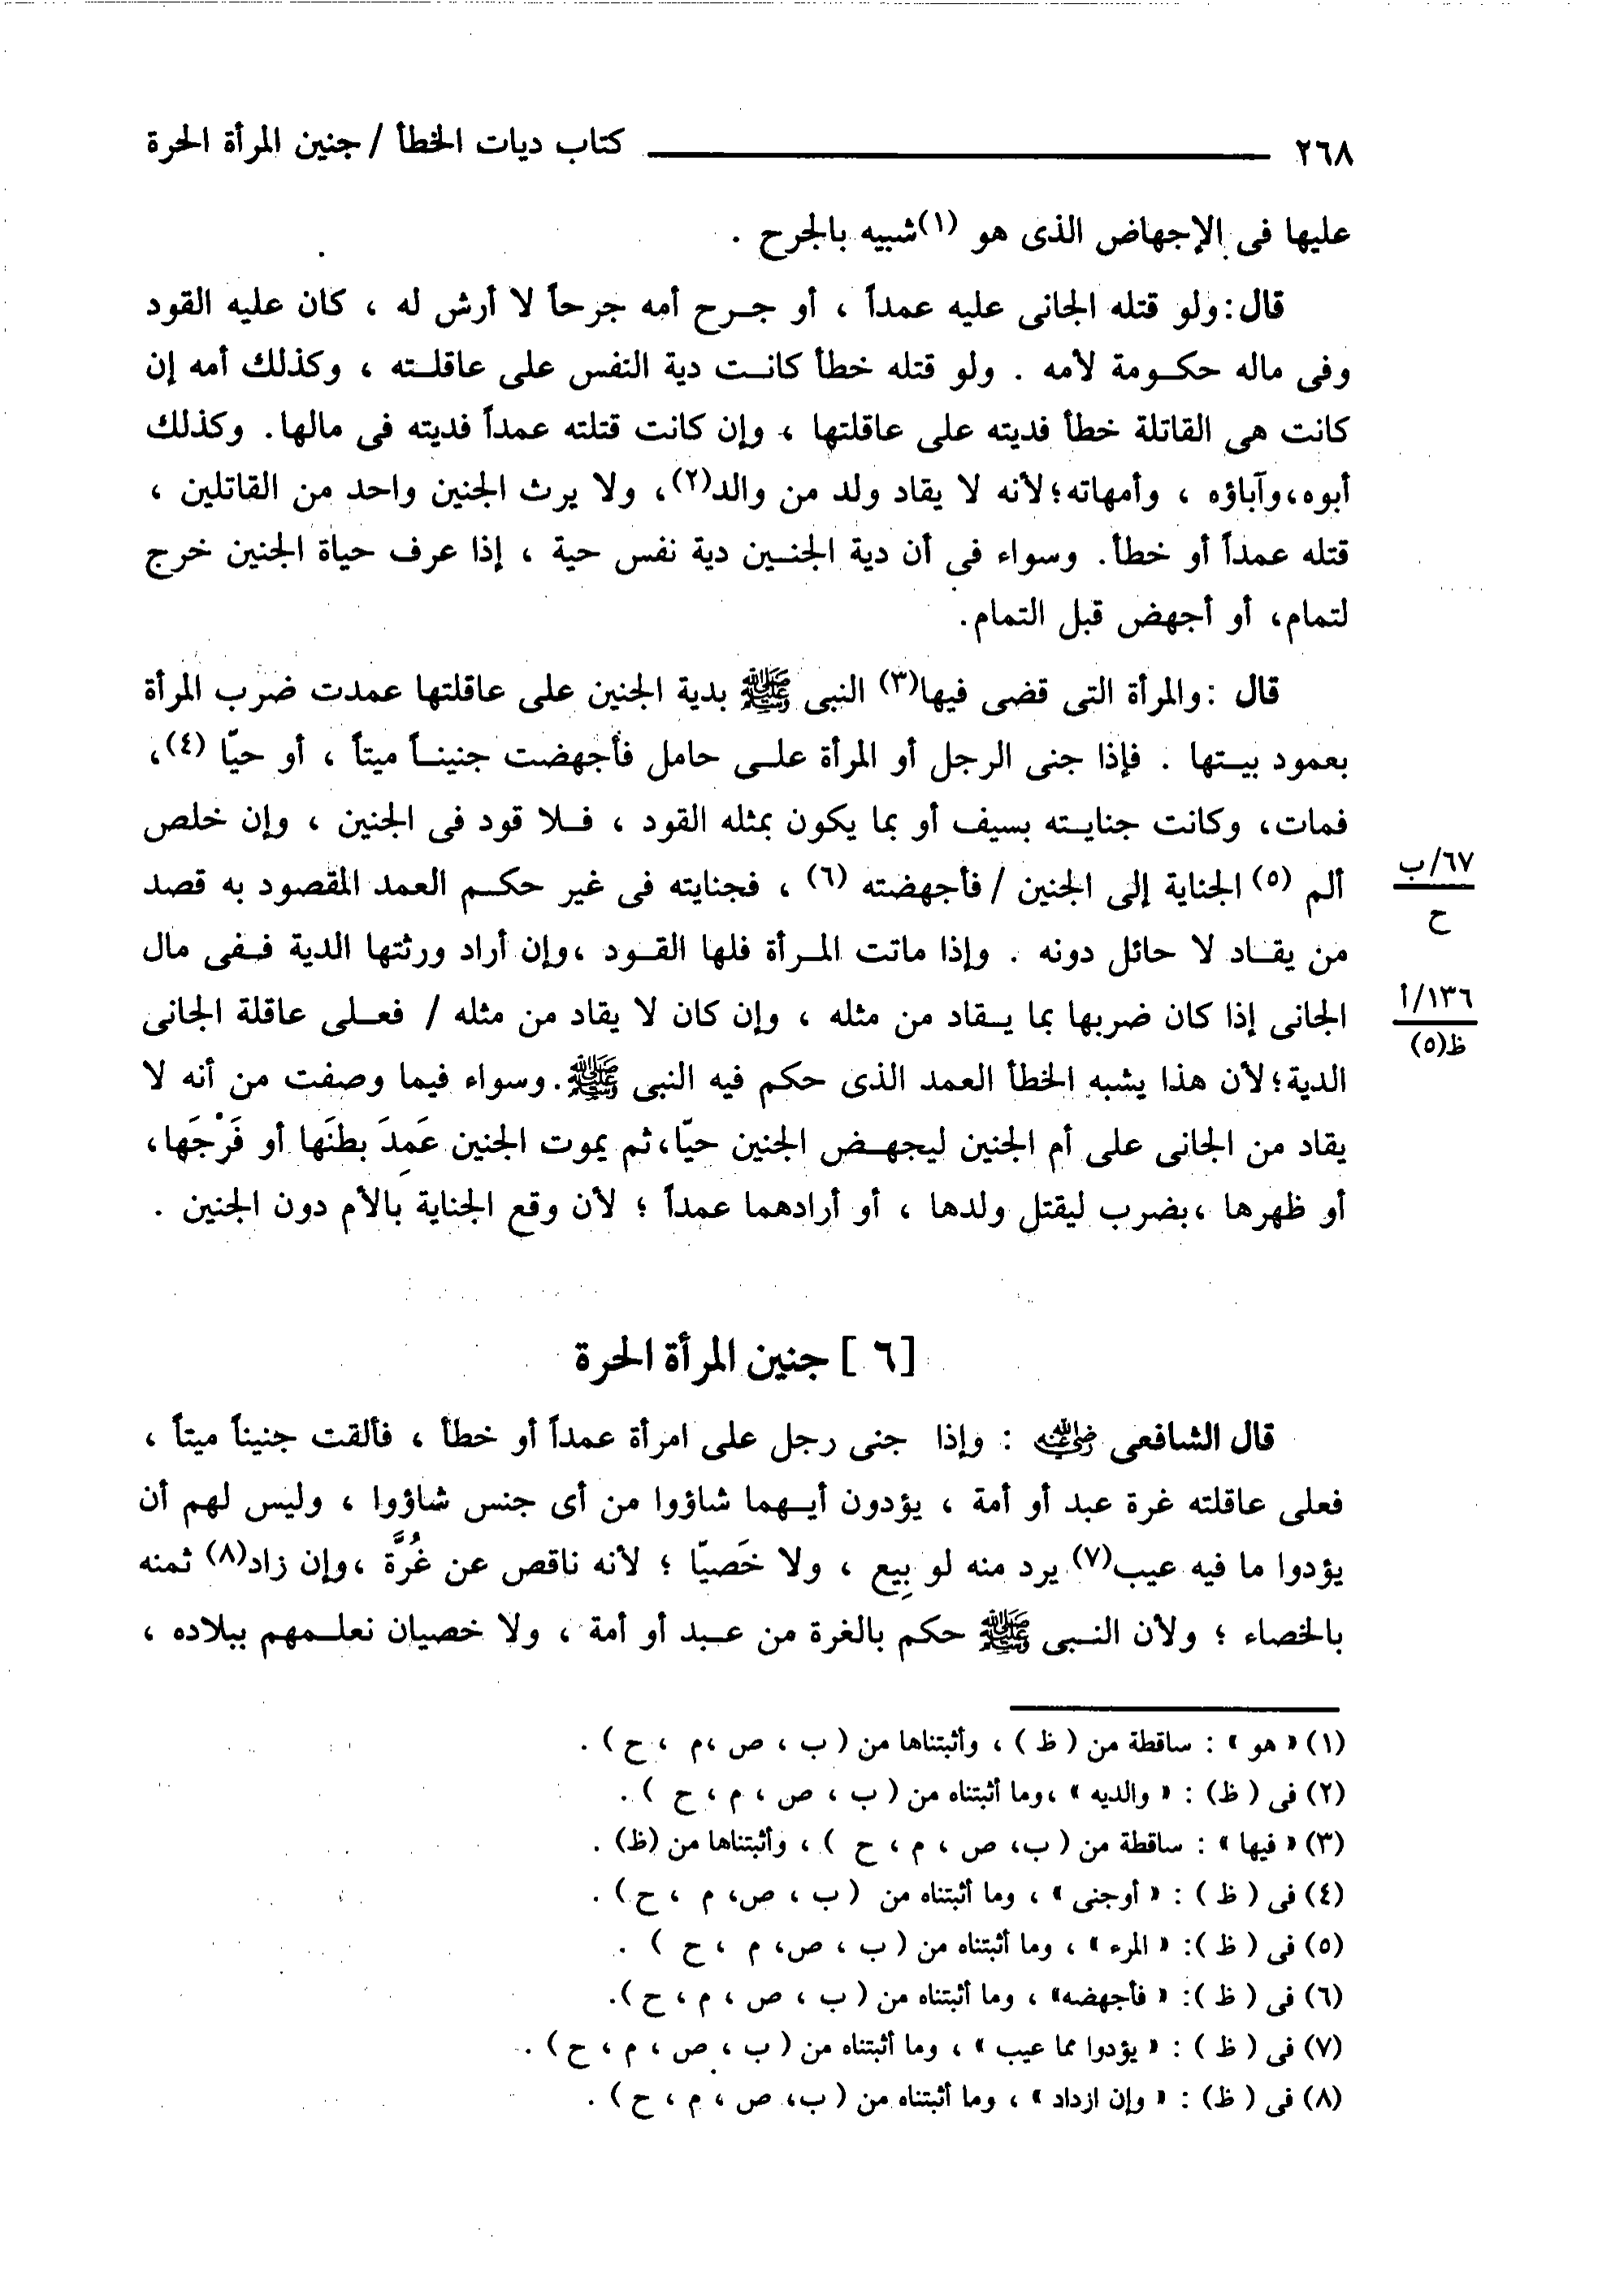 ٢٦٨ كتاب ديات الخطأ / جنين المرأة الحرة
عليها فى الإجهاض الذى هو (١)شبيه بالجرح .
قال:ولو قتله الجانى عليه عمداً ، أو جرح أمه جرحاً لا أرش له ، كان عليه القود
وفى ماله حكومة لأمه . ولو قتله خطأ كانت دية النفس على عاقلته ، وكذلك أمه إن
كانت هى القاتلة خطأ فديته على عاقلتها ، وإن كانت قتلته عمداً فديته فى مالها. وكذلك
أبوه،وآباؤه ، وأمهاته؛لأنه لا يقاد ولد من والد(٢)، ولا يرث الجنين واحد من القاتلين ،
قتله عمداً أو خطأ. وسواء فى أن دية الجنين دية نفس حية ، إذا عرف حياة الجنين خرج
لتمام، أو أجهض قبل التمام.
قال :والمرأة التى قضى فيها(٣) النبى ﷺ بدية الجنين على عاقلتها عمدت ضرب المرأة
بعمود بيتها . فإذا جنى الرجل أو المرأة على حامل فأجهضت جنيناً ميتاً ، أو حيّا (٤)،
فمات، وكانت جنايته بسيف أو بما يكون بمثله القود ، فلا قود فى الجنين ، وإن خلص
ألم (٥) الجناية إلى الجنين / فأجهضته (٦) ، فجنايته فى غير حكم العمد المقصود به قصد
٦٧/ب
ح
من يقاد لا حائل دونه . وإذا ماتت المرأة فلها القود ،وإن أراد ورثتها الدية ففى مال
الجانى إذا كان ضربها بما يقاد من مثله ، وإن كان لا يقاد من مثله / فعلى عاقلة الجانى
١٣٦/أ
ظ(٥)
الدية؛لأن هذا يشبه الخطأ العمد الذى حكم فيه النبى ﷺ.وسواء فيما وصفت من أنه لا
يقاد من الجانى على أم الجنين ليجهض الجنين حيّا،ثم يموت الجنين عَمِدَ بطنَها أو فَرْجَها،
أو ظهرها ،بضرب ليقتل ولدها ، أو أرادهما عمداً ؛ لأن وقع الجناية بالأم دون الجنين .
[٦ ] جنين المرأة الحرة
قال الشافعى رضي الله عنه : وإذا جنى رجل على امرأة عمداً أو خطأ ، فألقت جنيناً ميتاً ،
فعلى عاقلته غرة عبد أو أمة ، يؤدون أيهما شاؤوا من أى جنس شاؤوا ، وليس لهم أن
يؤدوا ما فيه عيب(٧) يرد منه لو بِيع ، ولا خَصيّا ؛ لأنه ناقص عن غُرَّة ،وإن زاد(٨) ثمنه
بالخصاء ؛ ولأن النبى ﷺ حكم بالغرة من عبد أو أمة ، ولا خصيان نعلمهم ببلاده ،
(١) « هو » : ساقطة من ( ظ ) ، وأثبتناها من ( ب ، ص ،م ، ح ) .
(٢) فى ( ظ) : « والديه » ،وما أثبتناه من ( ب ، ص ، م ، ح ) .
(٣) « فيها » : ساقطة من ( ب، ص ، م ، ح ) ، وأثبتناها من (ظ) .
(٤) فى ( ظ ) : « أوجنى » ، وما أثبتناه من ( ب ، ص، م ، ح ) .
(٥) فى ( ظ ): « المرء » ، وما أثبتناه من ( ب ، ص، م ، ح ) .
(٦) فى ( ظ ): « فأجهضه» ، وما أثبتناه من ( ب ، ص ، م ، ح ).
(٧) فى ( ظ ) : « يؤدوا مما عيب » ، وما أثبتناه من ( ب ، ص ، م ، ح ) .
(٨) فى ( ظ) : « وإن ازداد » ، وما أثبتناه من ( ب، ص ، م ، ح ) .